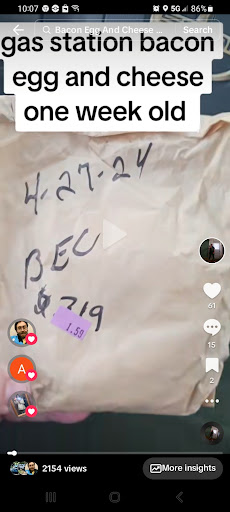 10:07
5G
86%
Bacon Egg And Cheese ...
Search
gas station bacon
egg and cheese
one week old
4-27-24
BEC
$3.19
1.59
61
15
2
A
2154 views
More insights